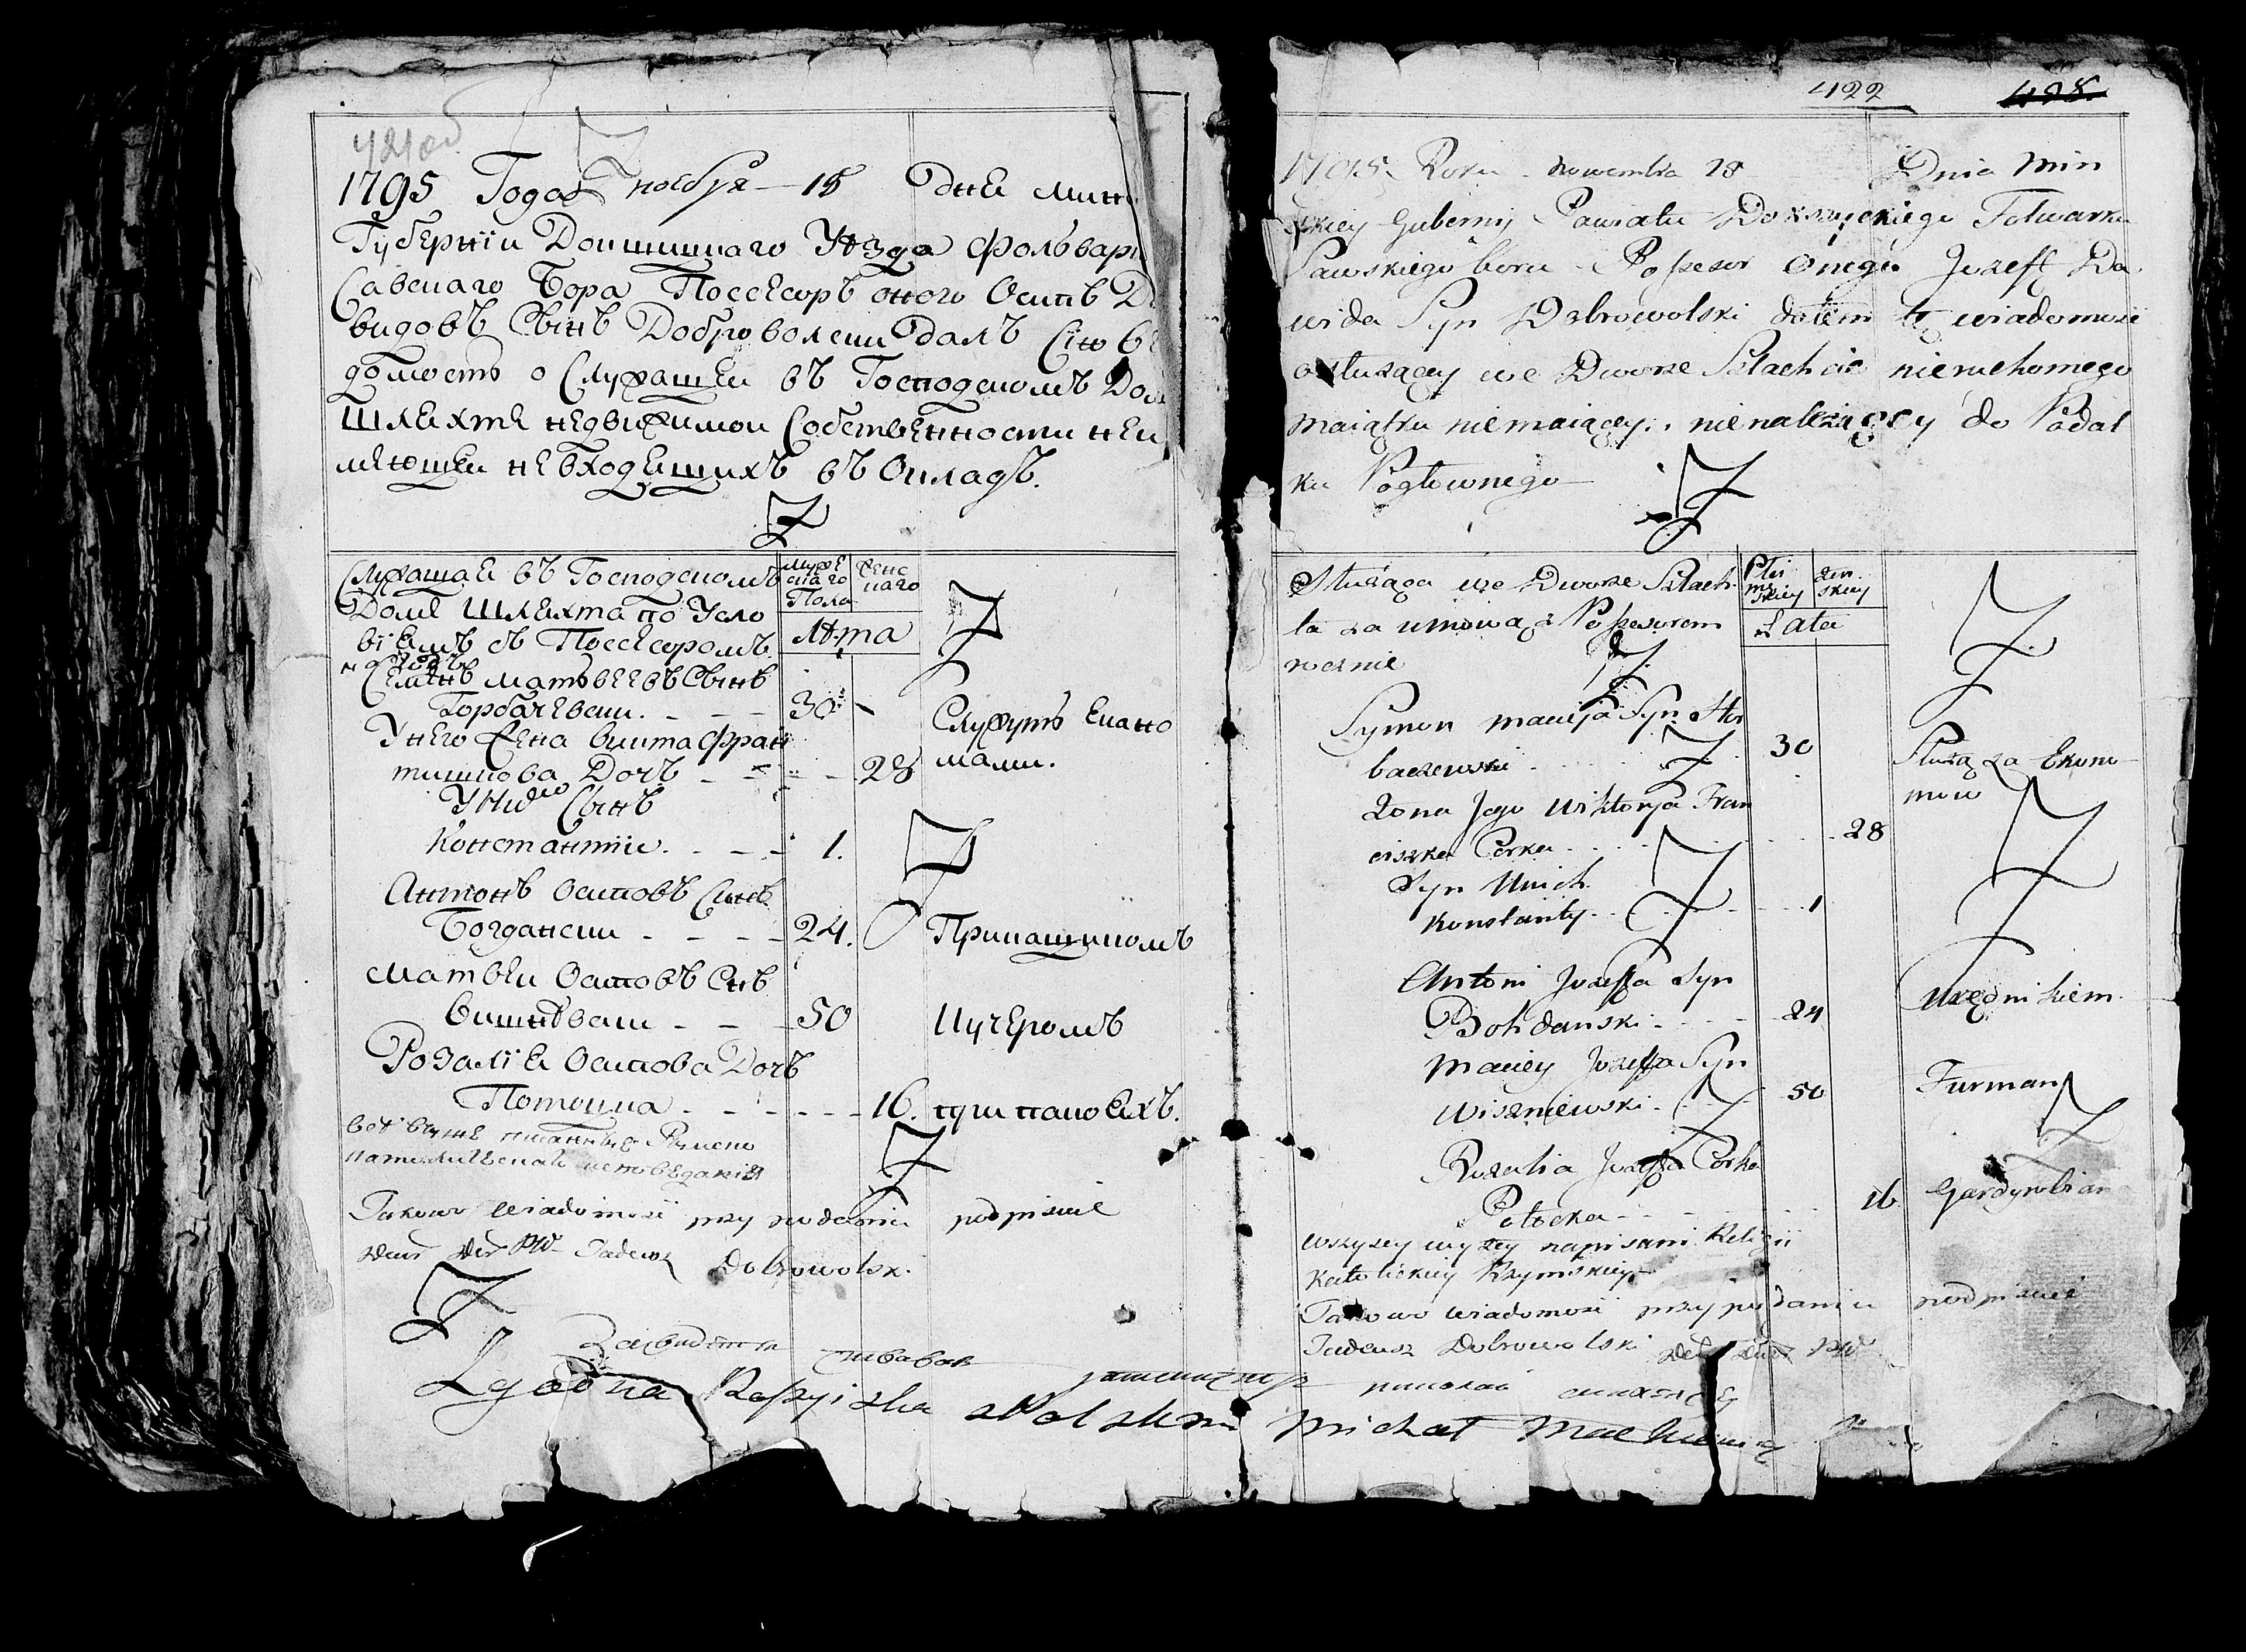 1795 Года ноября 18 дня Минс
Губернїи Докшицкаго Уезда фольварк
Савскаго Бора Поссесоръ оного Осипъ Д
видовъ Сынъ Доброволски далъ Сию в
домость о Служащеи въ Господскомъ Дом
шляхте недвижимои Собственности неи
меющеи не входящихъ въ Окладъ.
Служащая въ Господскомъ
Доме шляхта по Усло
вїямъ съ Поссесоромъ
на годъ
Муже
скаго
Пола
Женс
каго
Лета
Семенъ Матвеевъ Сынъ
Горбачевски. 30
Служутъ Екано
мами.
У него Жена Викта Фран
тишкова Дочь 28
У них Сынъ
Константїи. 1.
Антонъ Осиповъ Сынъ
Богдански 24. Прикащикомъ
Матвеи Осиповъ Снъ
Вишневски 50 Кучеромъ
Розалїя Осипова Дочъ
Потоцка 16. при панояхъ.
все выше писанные Римско
католическаго исповеданїя
Takowo wiadomość przy podaniu podpisuie
Tadeusz Dobrowolsk.
Zgodna Rossyiska z Polskim Michał
422 428.
1795 Roku Nowembra 18 Dnia Min
skiey Gubernij Powiatu Dokszyckiego Folwarku
Sawskiego boru Possesor Onego Jozeff Da
wida Syn Dobrowolski dałem tę wiadomość
o służącey we Dworze Szlachcie nieruchomego
maiątku niemaiącey, nienależącey do Podat
ku Pogłownego
Służąca we Dworze Szlach
ta za umową z Possesorem
rocznie
Płci
męskiey
żen
skiey
Lata
Symon Macieja Syn Hor
baczewski 30
Służą za Ekono
mow
Żona Jego Wiktorja Fran
ciszka Corka 28
Syn Unich
Konstanty 1
Antoni Jozeffa Syn
Bohdanski 24 Urzędnikiem
Maciey Jozeffa Syn
Wiszniewski 50 Furman
Rozalia Jozeffa Corka
Potocka 16 Garderobian
Wszyscy wyżey napisani Religii
Katolickiey Rzymskiey
Takowo wiadomość przy podaniu podpisuie
Tadeusz Dobrowolski